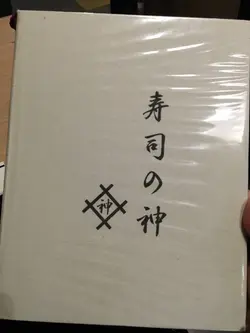 寿司の神
神